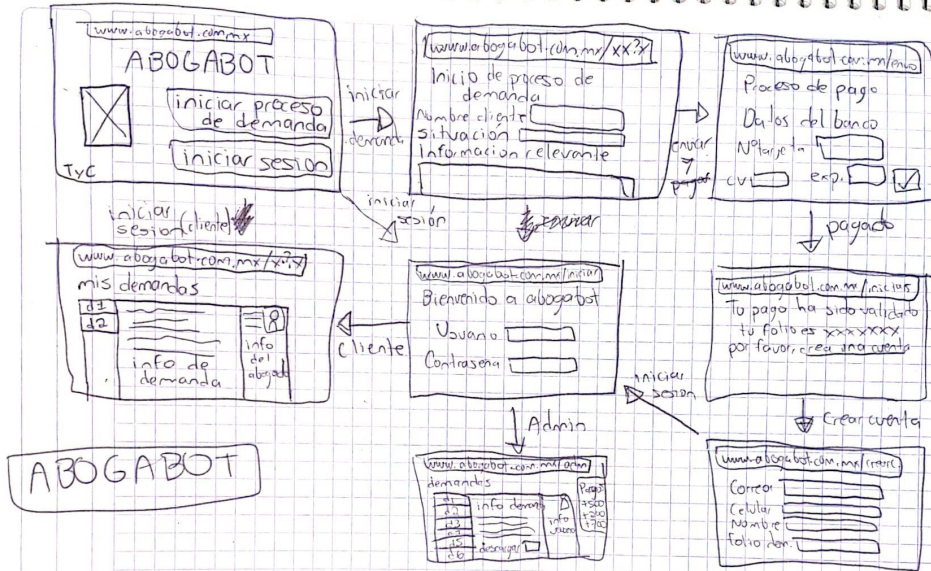 www.abogabot.com.mx
ABOGABOT
iniciar proceso
de demanda
iniciar sesion
TyC
iniciar
demanda
www.abogabot.com.mx/xx?x
Inicio de proceso de
demanda
Nombre cliente
Situación
Información relevante
enviar
y
pagar
www.abogabot.com.mx/
Proceso de pago
Datos del banco
Nº tarjeta
CV
exp.
iniciar
sesion (cliente)
iniciar
sesión
pagado
www.abogabot.com.mx/x?x
mis demandas
d1
d2
info de
demanda
info
del
abogado
cliente
www.abogabot.com.mx/iniciar
Bienvenido a abogabot
Usuario
Contraseña
www.abogabot.com.mx/
Tu pago ha sido validado
tu folio es xxxxxxx
por favor, crea una cuenta
iniciar
sesion
Admin
Crear cuenta
ABOGABOT
www.abogabot.com.mx/adm
demandas
d1
d2
d3
d5
d6
info demanda
descargar
info
Pagos
+500
+700
www.abogabot.com.mx/
Correo
Celular
Nombre
folio dem.